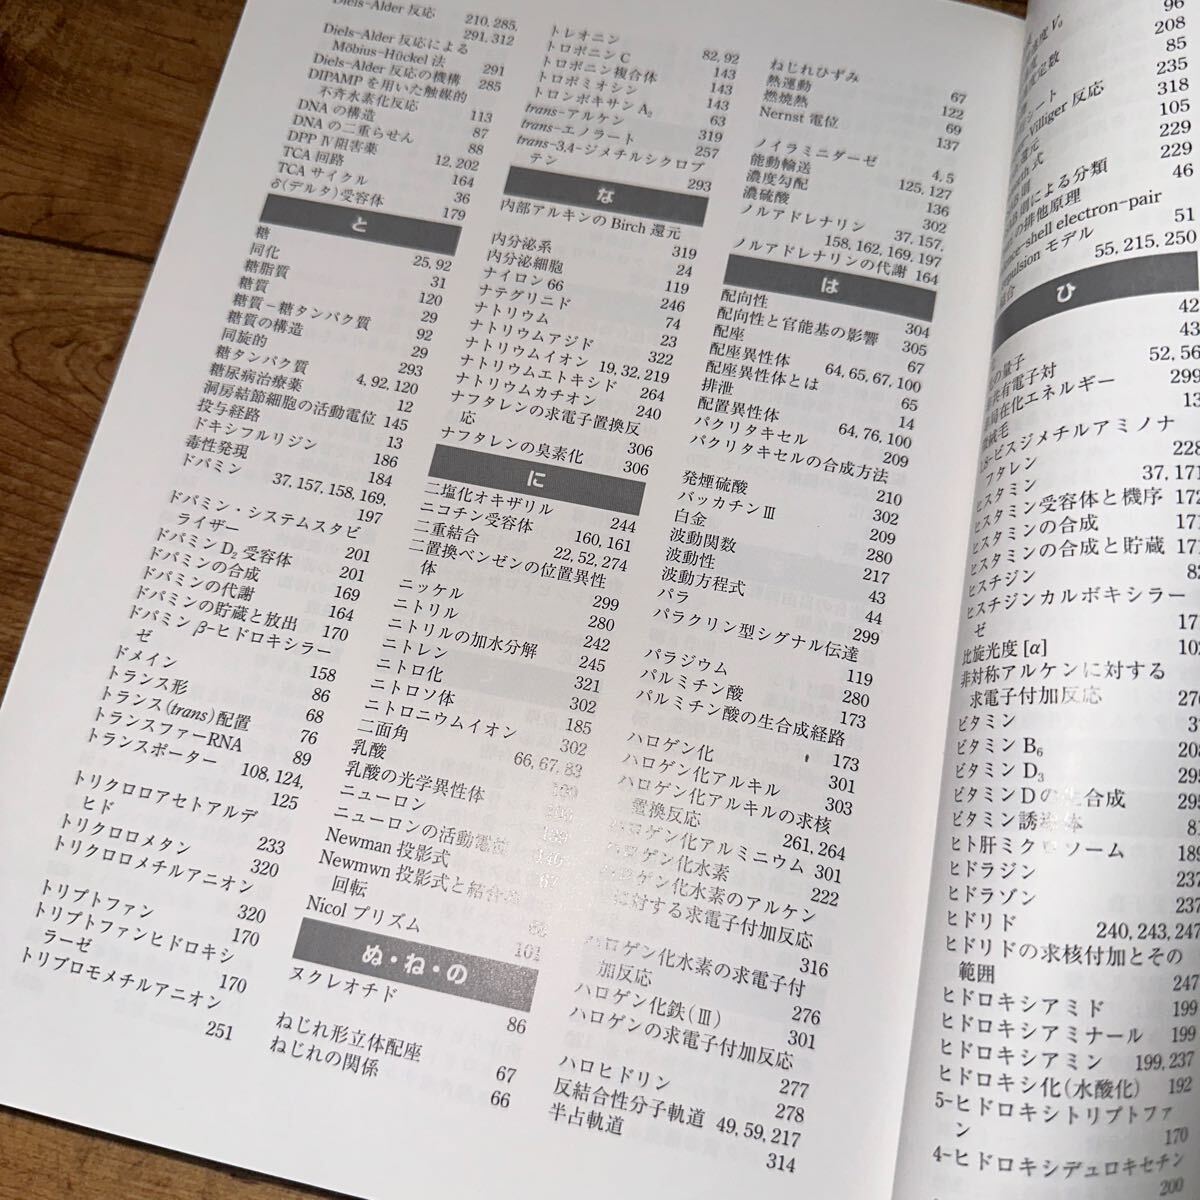 Diels-Alder 反応 210, 285,
291, 312
Diels-Alder 反応による
Möbius-Hückel 法 291
Diels-Alder 反応の機構 285
DIPAMP を用いた触媒的
不斉水素化反応 113
DNA の構造 87
DNA の二重らせん 88
DPP Ⅳ阻害薬 12, 202
TCA 回路 164
TCA サイクル 36
δ(デルタ)受容体 179
と
糖 25, 92
同化 31
糖脂質 120
糖質 29
糖質−糖タンパク質 92
糖質の構造 29
同旋的 293
糖タンパク質 4, 92, 120
糖尿病治療薬 12
洞房結節細胞の活動電位 145
投与経路 13
ドキシフルリジン 186
毒性発現 184
ドパミン 37, 157, 158, 169,
197
ドパミン・システムスタビ
ライザー 201
ドパミン D2 受容体 201
ドパミンの合成 169
ドパミンの代謝 164
ドパミンの貯蔵と放出 170
ドパミン β-ヒドロキシラー
ゼ 158
ドメイン 86
トランス形 68
トランス(trans)配置 76
トランスファーRNA 89
トランスポーター 108, 124,
125
トリクロロアセトアルデ
ヒド 233
トリクロロメタン 320
トリクロロメチルアニオン
320
トリプトファン 170
トリプトファンヒドロキシ
ラーゼ 170
トリブロモメチルアニオン
251
トレオニン 82, 92
トロポニン C 143
トロポニン複合体 143
トロポミオシン 143
トロンボキサン A2 63
trans-アルケン 319
trans-エノラート 257
trans-3,4-ジメチルシクロブ
テン 293
な
内部アルキンの Birch 還元
319
内分泌系 24
内分泌細胞 119
ナイロン 66 246
ナテグリニド 74
ナトリウム 23
ナトリウムアジド 322
ナトリウムイオン 19, 32, 219
ナトリウムエトキシド 264
ナトリウムカチオン 240
ナフタレンの求電子置換反
応 306
ナフタレンの臭素化 306
に
二塩化オキザリル 244
ニコチン受容体 160, 161
二重結合 22, 52, 274
二置換ベンゼンの位置異性
体 299
ニッケル 280
ニトリル 242
ニトリルの加水分解 245
ニトレン 321
ニトロ化 302
ニトロソ体 185
ニトロニウムイオン 302
二面角 66, 67, 83
乳酸
乳酸の光学異性体
ニューロン
ニューロンの活動電位
Newman 投影式 67
Newmwn 投影式と結合
回転
Nicol プリズム 101
ぬ・ね・の
ヌクレオチド 86
ねじれ形立体配座 67
ねじれの関係 66
ねじれひずみ 67
熱運動 122
燃焼熱 69
Nernst 電位 137
ノイラミニダーゼ 4, 5
能動輸送 125, 127
濃度勾配 136
濃硫酸 302
ノルアドレナリン 37, 157,
158, 162, 169, 197
ノルアドレナリンの代謝 164
は
配向性 304
配向性と官能基の影響 305
配座 67
配座異性体 64, 65, 67, 100
配座異性体とは 65
排泄 14
配置異性体 64, 76, 100
パクリタキセル 209
パクリタキセルの合成方法
210
発煙硫酸 302
バッカチンⅢ 209
白金 280
波動関数 217
波動性 43
波動方程式 44
パラ 299
パラクリン型シグナル伝達
119
パラジウム 280
パルミチン酸 173
パルミチン酸の生合成経路
173
ハロゲン化 301
ハロゲン化アルキル 303
ハロゲン化アルキルの求核
置換反応 261, 264
ハロゲン化アルミニウム 301
ハロゲン化水素 222
ハロゲン化水素のアルケン
に対する求電子付加反応
316
ハロゲン化水素の求電子付
加反応 276
ハロゲン化鉄(Ⅲ) 301
ハロゲンの求電子付加反応
277
ハロヒドリン 278
反結合性分子軌道 49, 59, 217
半占軌道 314
96
速度 V0 208
85
度定数 235
シート 318
Villiger 反応 105
還元 229
式 229
則による分類 46
の排他原理
shell electron-pair 51
pulsion モデル 55, 215, 250
ひ
42
43
52, 56
量子 299
共有電子対 13
局在化エネルギー
絨毛
1,8-ビスジメチルアミノナ
フタレン 228
ヒスタミン 37, 171
ヒスタミン受容体と機序 172
ヒスタミンの合成 171
ヒスタミンの合成と貯蔵 171
ヒスチジン
ヒスチジンカルボキシラー
ゼ 171
比旋光度 [α] 102
非対称アルケンに対する
求電子付加反応 276
ビタミン
ビタミン B6 203
ビタミン D3 295
ビタミン D の生合成 295
ビタミン誘導体
ヒト肝ミクロソーム 189
ヒドラジン 237
ヒドラゾン 237
ヒドリド 240, 243, 247
ヒドリドの求核付加とその
範囲 247
ヒドロキシアミド 199
ヒドロキシアミナール 199
ヒドロキシアミン 199, 237
ヒドロキシ化(水酸化) 192
5-ヒドロキシトリプトファ
ン 170
4-ヒドロキシデュロキセチン
200